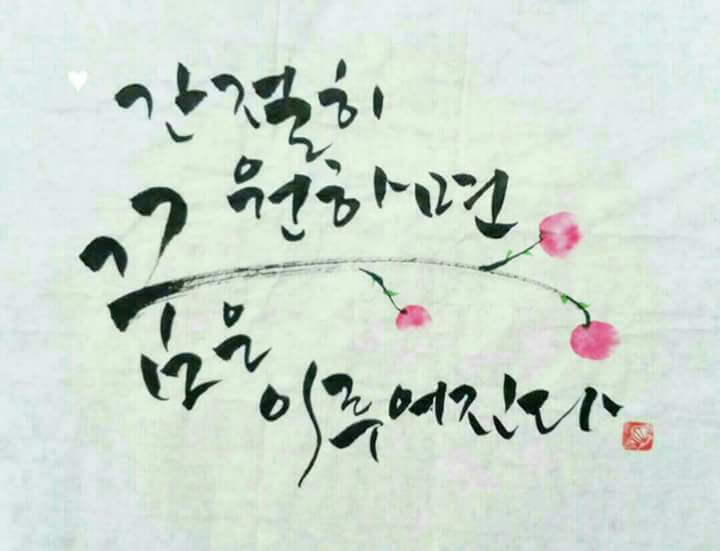 간절히
원하면
꿈은
이루어진다